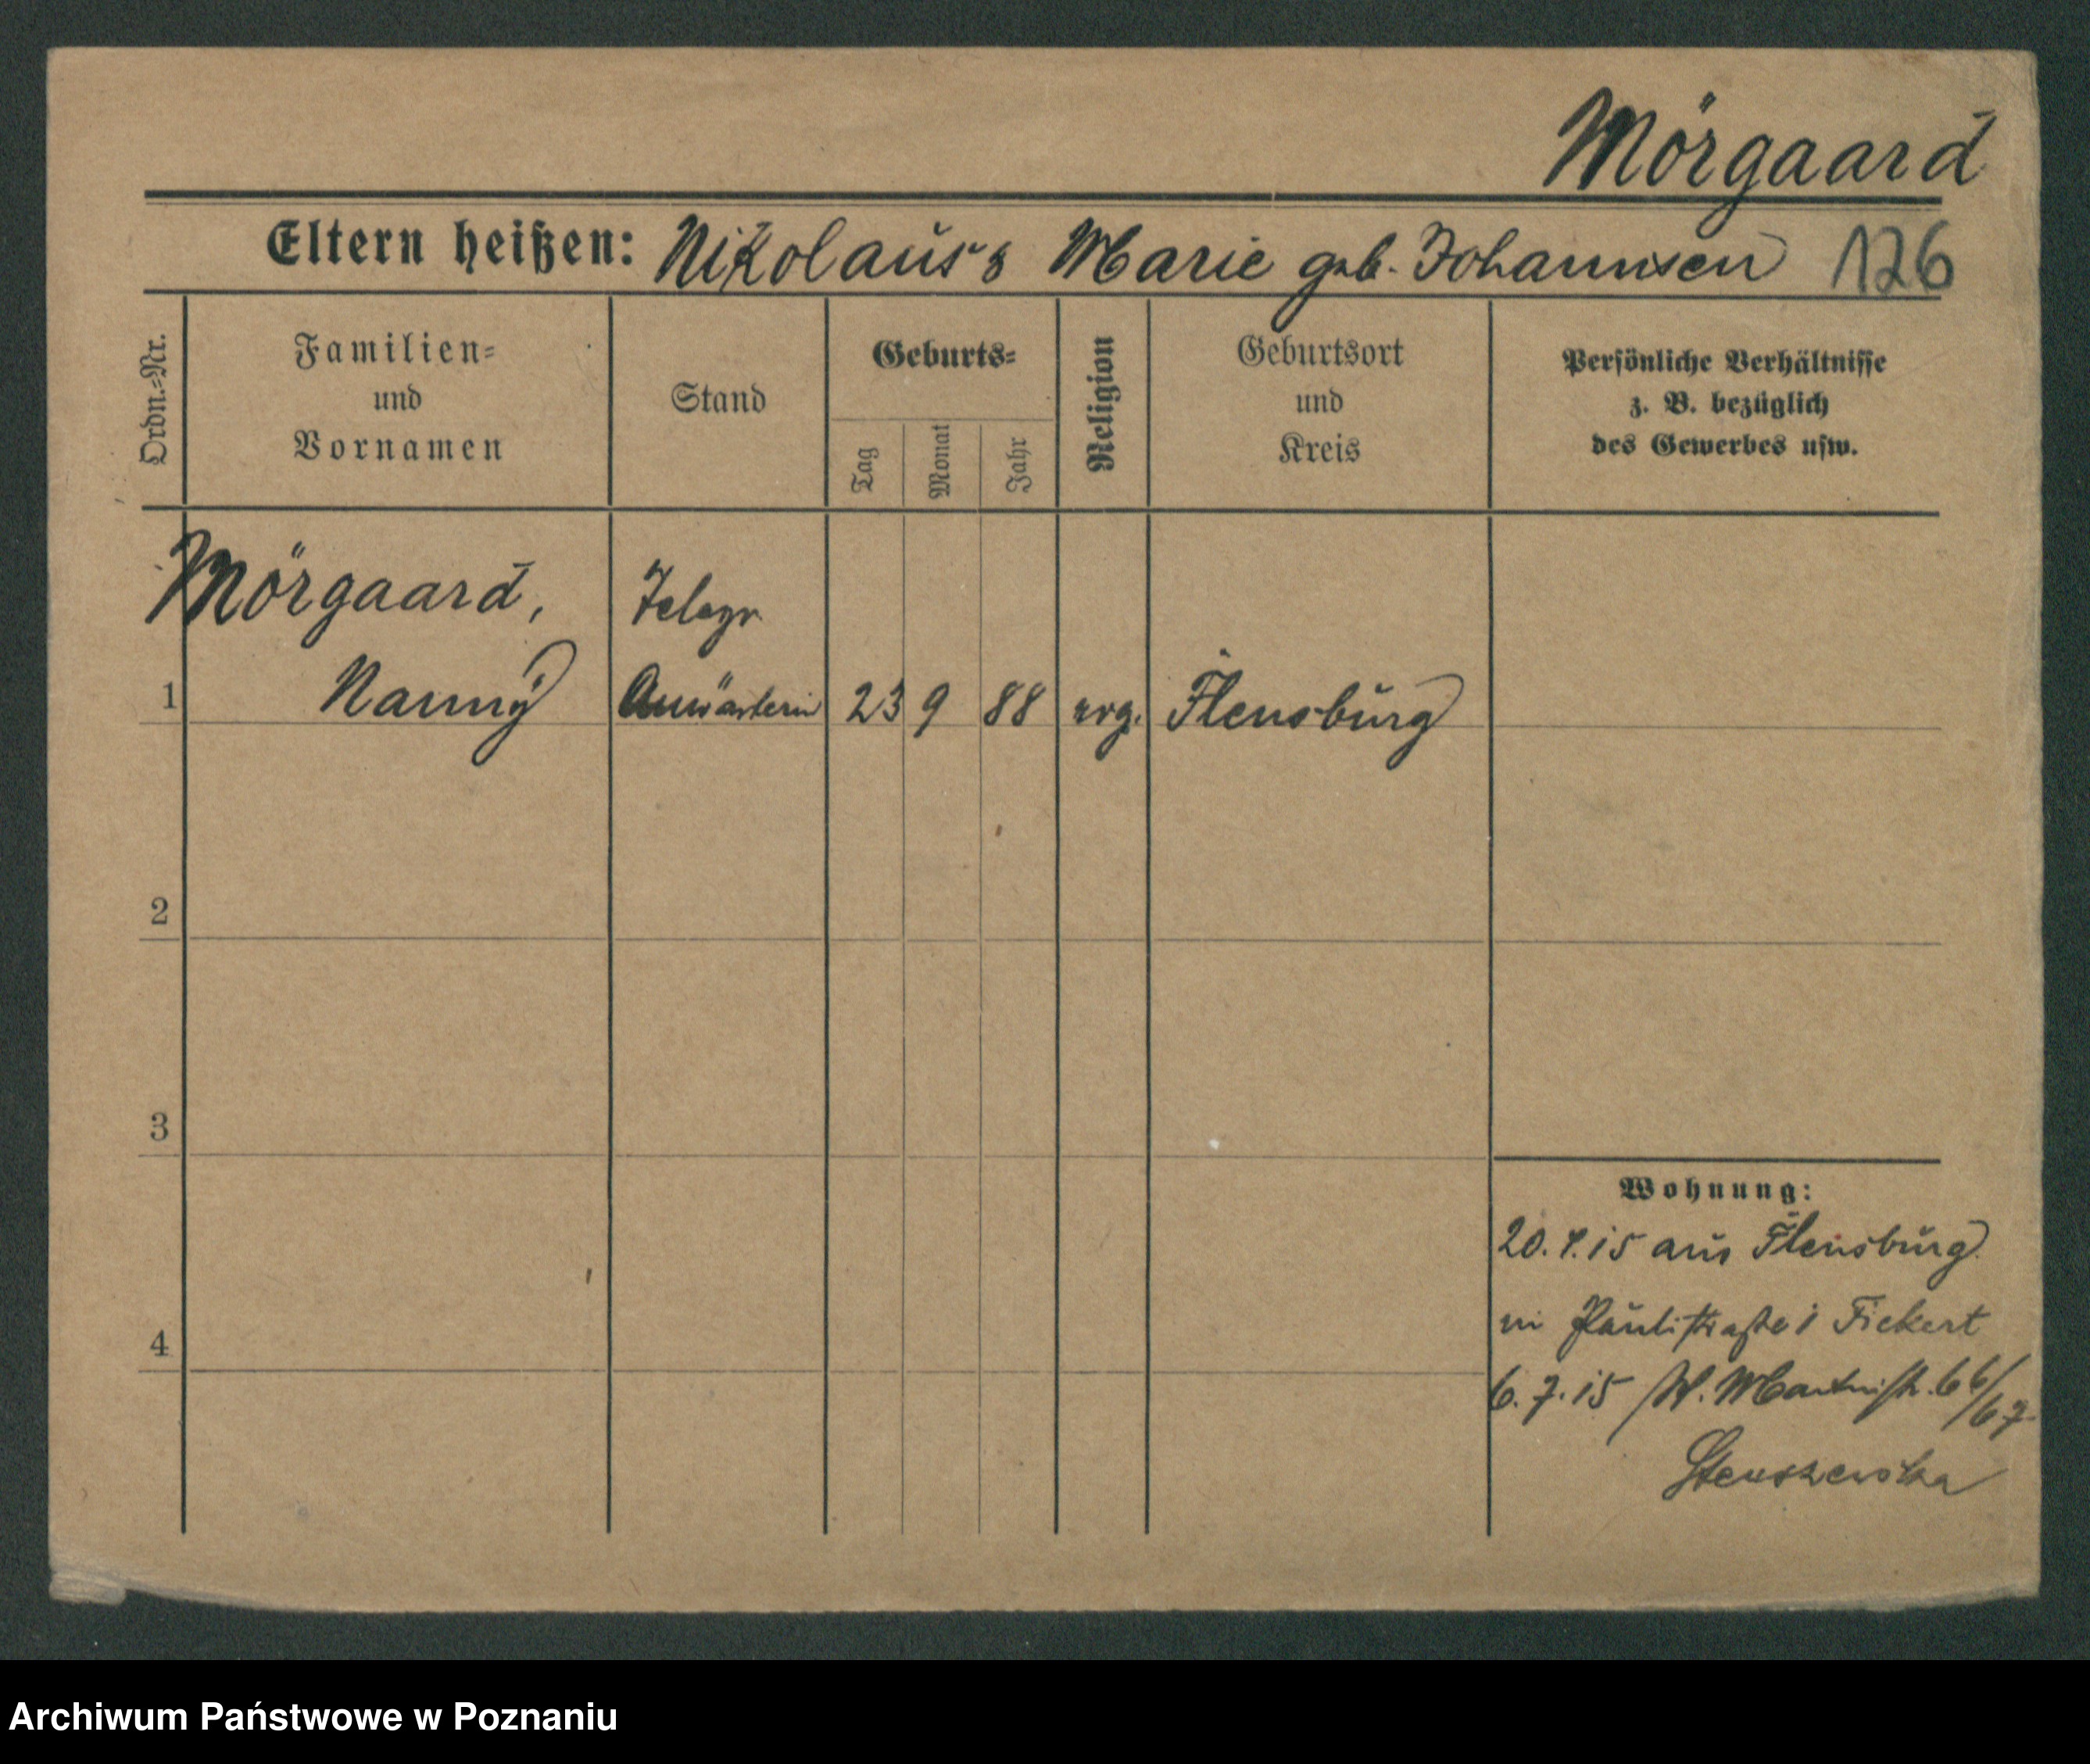 Mörgaard
Eltern heißen: Nikolaus & Marie geb. Johannsen 126
Ordn.-Nr.
Familien-
und
Vornamen
Stand
Geburts-
Tag
Monat
Jahr
Religion
Geburtsort
und
Kreis
Persönliche Verhältnisse
z. B. bezüglich
des Gewerbes usw.
Mörgaard, Telegr
1 Nanny Anwärterin 23 9 88 evg. Flensburg
2
3
4
Wohnung:
20. 4. 15 aus Flensburg
in Paulistraße Fickert
6. 7. 15 St. Martinstr. 66/67
Archiwum Państwowe w Poznaniu